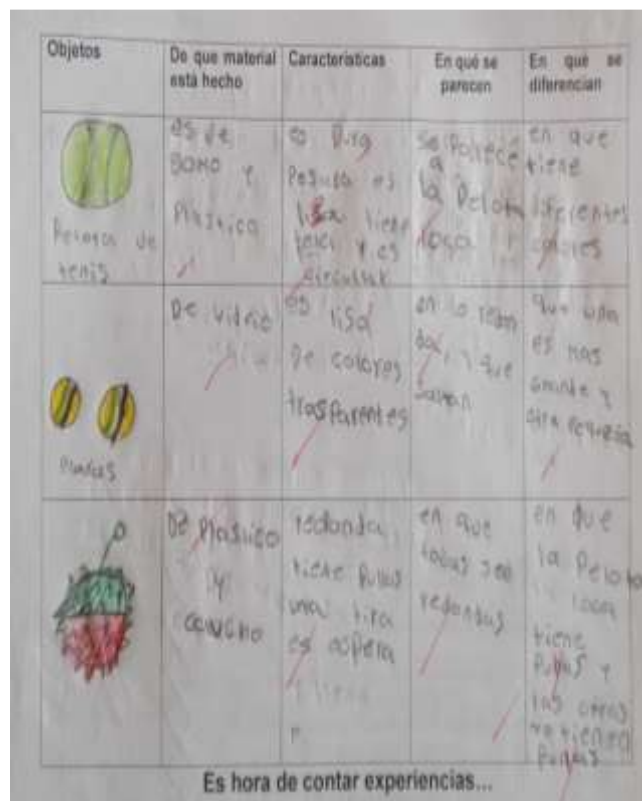 Objetos
De que material
está hecho
Características
En qué se
parecen
En qué se
diferencian
Pelota de
tenis
es de
y
Plastico
es Dura
es
lisa tiene
y es
se Parece
a
la Pelota
loca
en que
tiene
diferentes
colores
De vidrio
es lisa
De colores
trasparentes
en lo
y que
que una
es mas
Grande y
otra Pequeña
De Plastico
y
caucho
redonda
tiene Puyas
una tira
es aspera
en que
todas son
redondas
en que
la Pelota
loca
tiene
Puyas y
las otras
no tienen
Puyas
Es hora de contar experiencias...